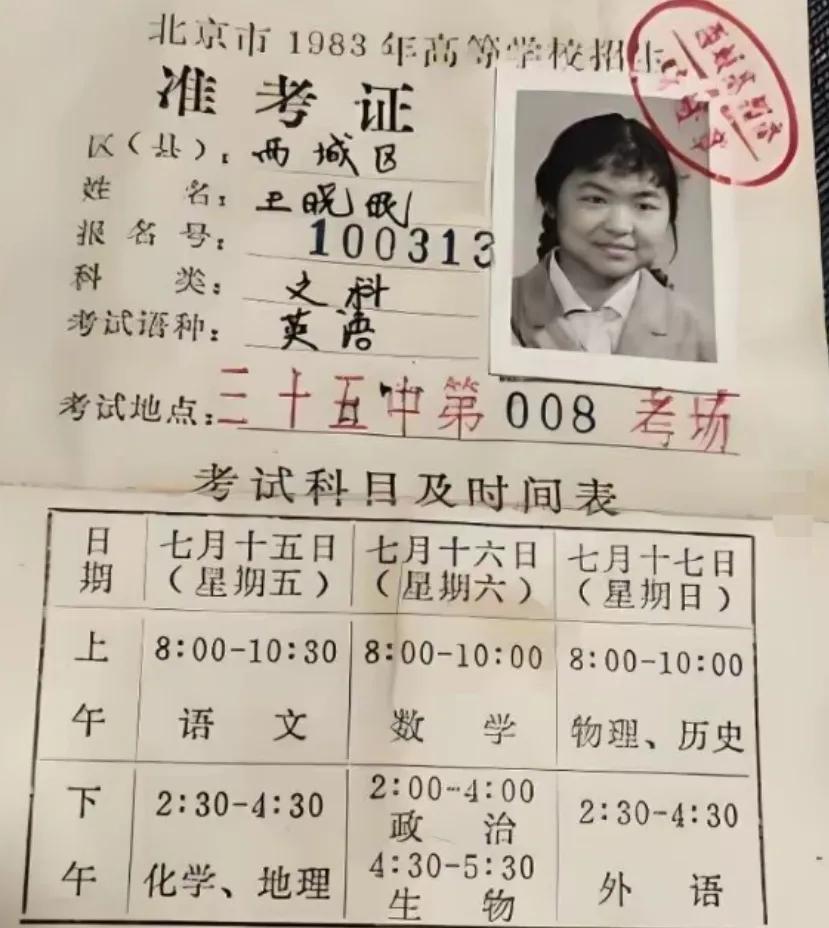 北京市1983年高等学校招生
准考证
区(县): 西城区
姓名: 王晓岷
报名号: 100313
科类: 文科
考试语种: 英语
考试地点: 三十五中第008考场
考试科目及时间表
日期 七月十五日(星期五) 七月十六日(星期六) 七月十七日(星期日)
上午 8:00-10:30 语文 8:00-10:00 数学 8:00-10:00 物理、历史
下午 2:30-4:30 化学、地理 2:00-4:00 政治 4:30-5:30 生物 2:30-4:30 外语